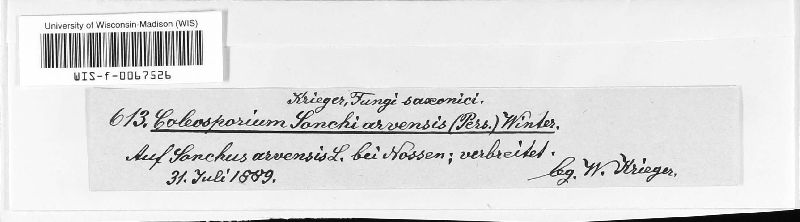 University of Wisconsin-Madison (WIS)
WIS-f-0067526
Krieger, Fungi saxonici.
613. Coleosporium Sonchi arvensis (Pers.) Winter.
Auf Sonchus arvensis L. bei Nossen; verbreitet.
31. Juli 1889.
lg. W. Krieger.